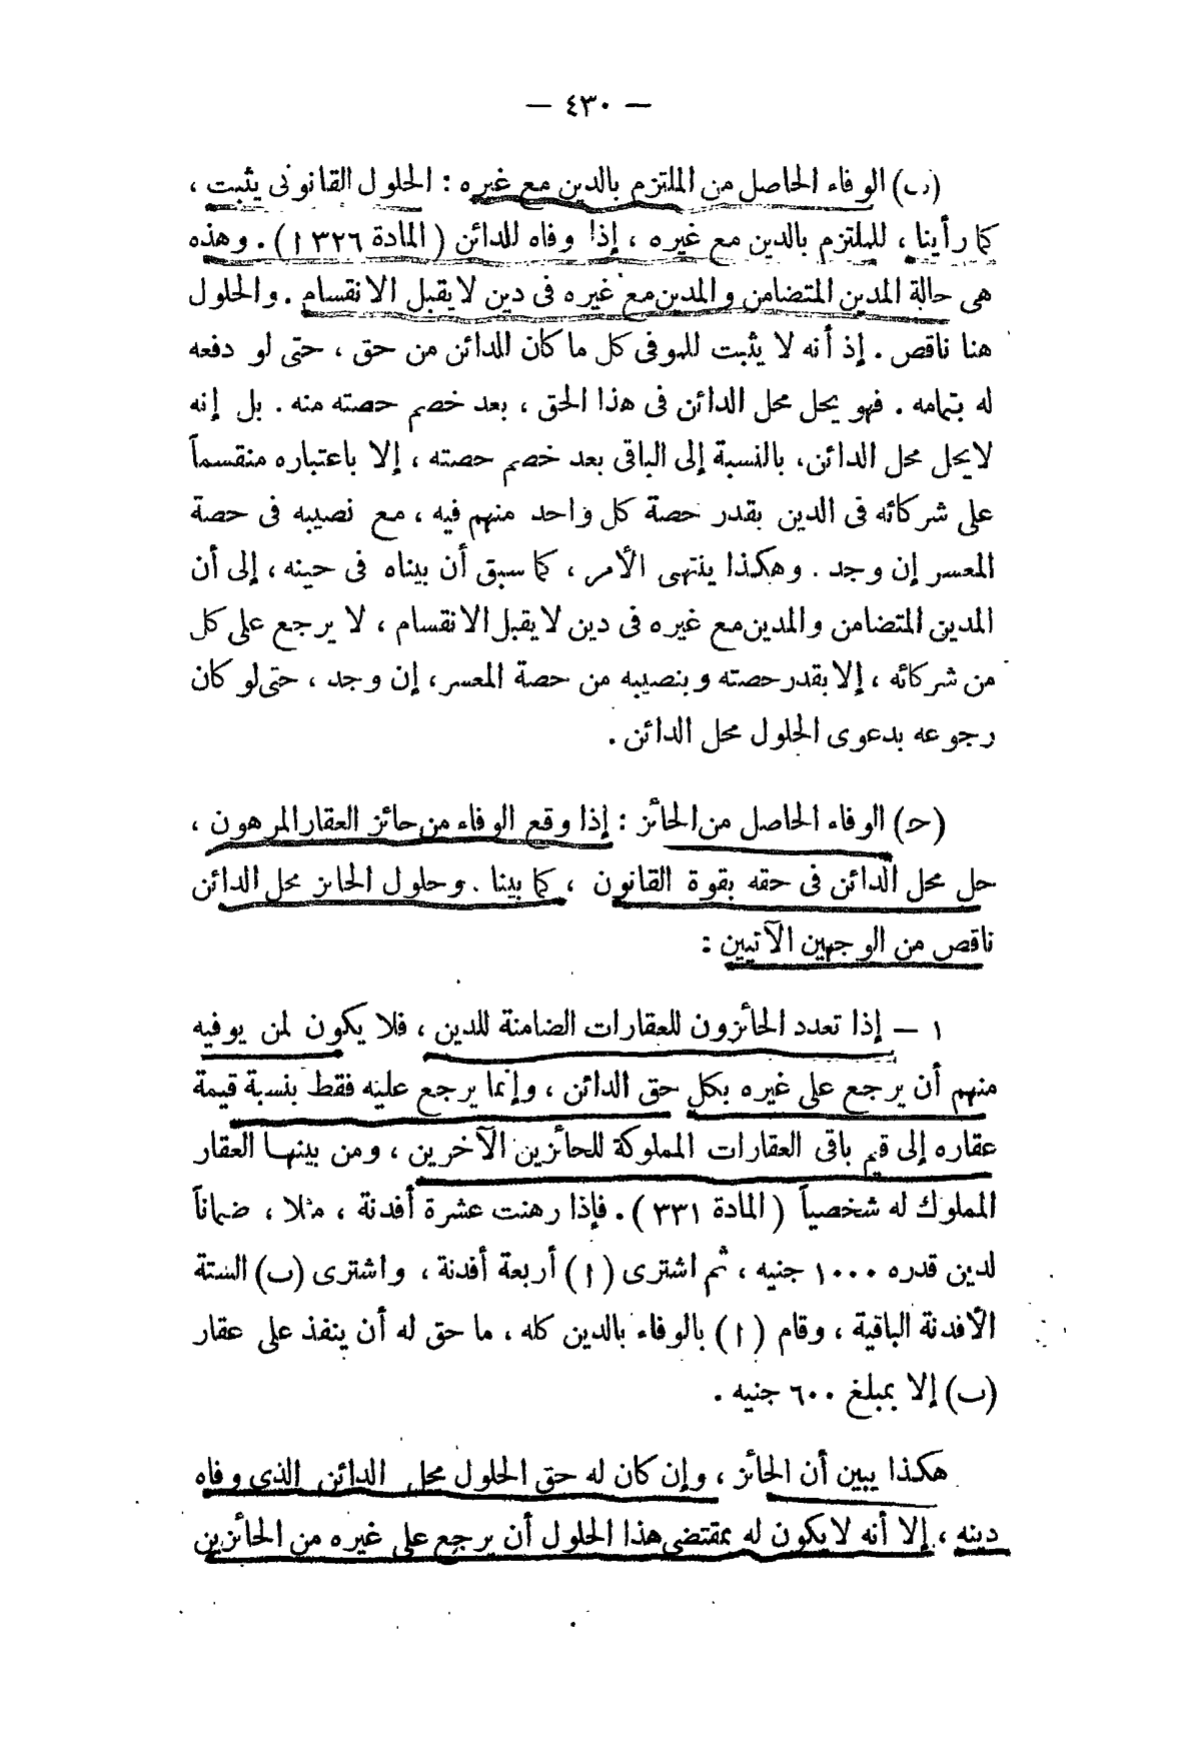 — ٤٣٠ —
(ب) الوفاء الحاصل من الملتزم بالدين مع غيره : الحلول القانونى يثبت ،
كما رأينا ، للملتزم بالدين مع غيره ، إذا وفاه للدائن ( المادة ٣٢٦ ١ ) . وهذه
هى حالة المدين المتضامن والمدين مع غيره فى دين لا يقبل الانقسام . والحلول
هنا ناقص . إذ أنه لا يثبت للموفى كل ما كان للدائن من حق ، حتى لو دفعه
له بتمامه . فهو يحل محل الدائن فى هذا الحق ، بعد خصم حصته منه . بل إنه
لا يحل محل الدائن، بالنسبة إلى الباقى بعد خصم حصته ، إلا باعتباره منقسماً
على شركائه فى الدين بقدر حصة كل واحد منهم فيه ، مع نصيبه فى حصة
المعسر إن وجد . وهكذا ينتهى الأمر ، كما سبق أن بيناه فى حينه ، إلى أن
المدين المتضامن والمدين مع غيره فى دين لا يقبل الانقسام ، لا يرجع على كل
من شركائه ، إلا بقدر حصته وبنصيبه من حصة المعسر، إن وجد ، حتى لو كان
رجوعه بدعوى الحلول محل الدائن .
(حـ) الوفاء الحاصل من الحائز : إذا وقع الوفاء من حائز العقار المرهون ،
حل محل الدائن فى حقه بقوة القانون ، كما بينا . وحلول الحائز محل الدائن
ناقص من الوجهين الآتيين :
١ – إذا تعدد الحائزون للعقارات الضامنة للدين ، فلا يكون لمن يوفيه
منهم أن يرجع على غيره بكل حق الدائن ، وإنما يرجع عليه فقط بنسبة قيمة
عقاره إلى قيم باقى العقارات المملوكة للحائزين الآخرين ، ومن بينها العقار
المملوك له شخصياً ( المادة ٣٣١ ) . فإذا رهنت عشرة أفدنة ، مثلا ، ضماناً
لدين قدره ١٠٠٠ جنيه ، ثم اشترى ( ا ) أربعة أفدنة ، واشترى (ب) الستة
الأفدنة الباقية ، وقام ( ا ) بالوفاء بالدين كله ، ما حق له أن ينفذ على عقار
(ب) إلا بمبلغ ٦٠٠ جنيه .
هكذا يبين أن الحائز ، وإن كان له حق الحلول محل الدائن الذى وفاه
دينه ، إلا أنه لا يكون له بمقتضى هذا الحلول أن يرجع على غيره من الحائزين